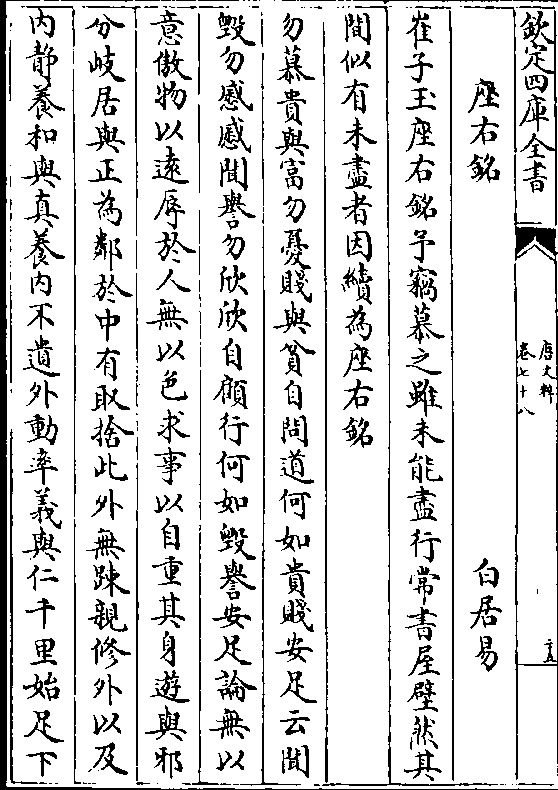 欽定四庫全書
唐文粹
卷七十八
十五
座右銘
白居易
崔子玉座右銘予竊慕之雖未能盡行常書屋壁然其
間似有未盡者因續為座右銘
勿慕貴與富勿憂賤與貧自問道何如貴賤安足云聞
毀勿慼慼聞譽勿欣欣自顧行何如毀譽安足論無以
意傲物以遠辱於人無以色求事以自重其身遊與邪
分岐居與正為鄰於中有取捨此外無踈親修外以及
内静養和與真養内不遺外動率義與仁千里始足下